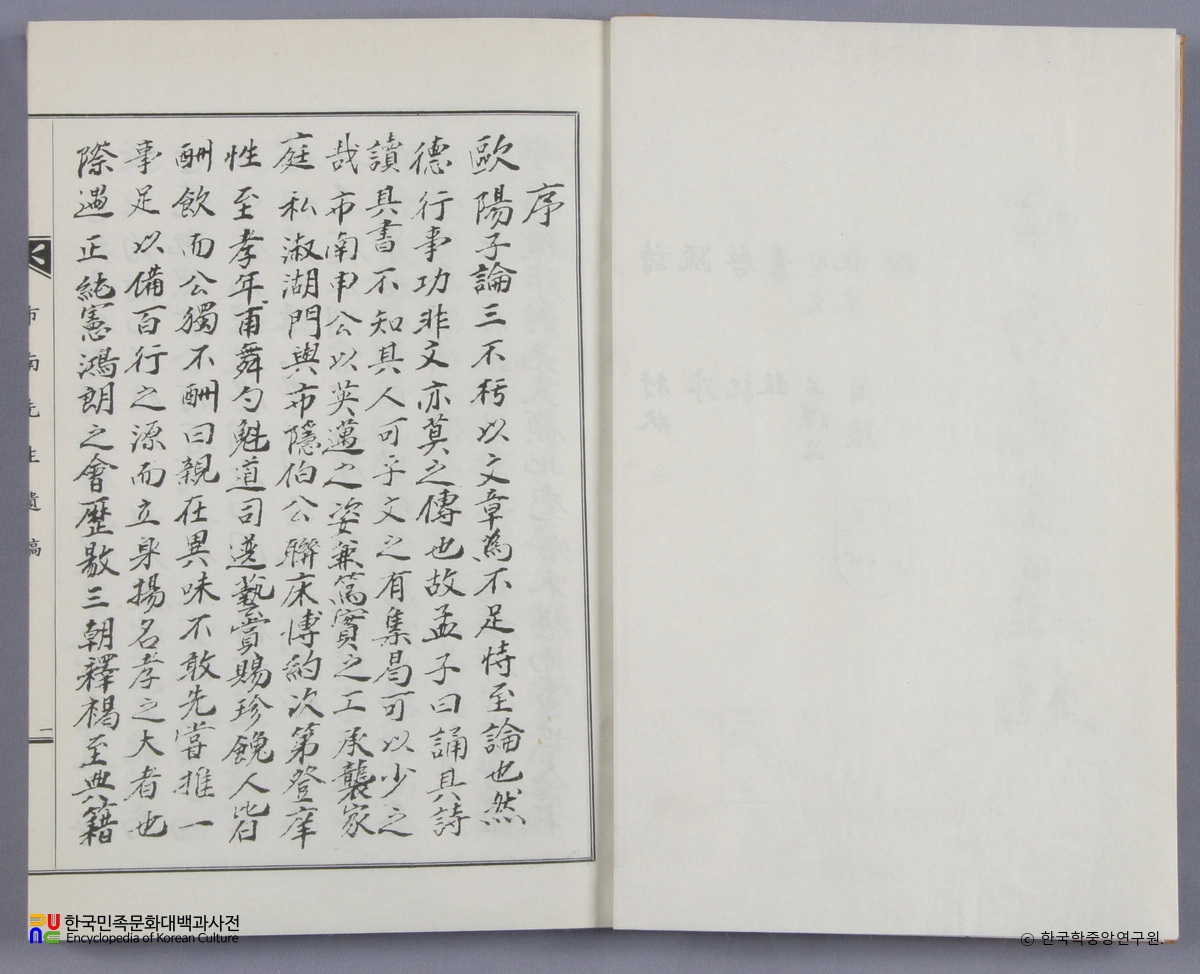 序
歐陽子論三不朽以文章為不足恃至論也然
德行事功非文亦莫之傳也故孟子曰誦其詩
讀其書不知其人可乎文之有集曷可以少之
哉市南申公以英邁之姿兼篤實之工承襲家
庭私淑湖門與布隱伯公聯床博約次第登庠
性至孝年甫舞勺魁道司選藝賞賜珍餽人皆
酬飲而公獨不酬曰親在異味不敢先嘗推一
事足以備百行之源而立身揚名孝之大者也
際遇正純憲鴻朗之會歷敭三朝釋褐至典籍
市南先生遺稿
一
한국민족문화대백과사전
Encyclopedia of Korean Culture
© 한국학중앙연구원.